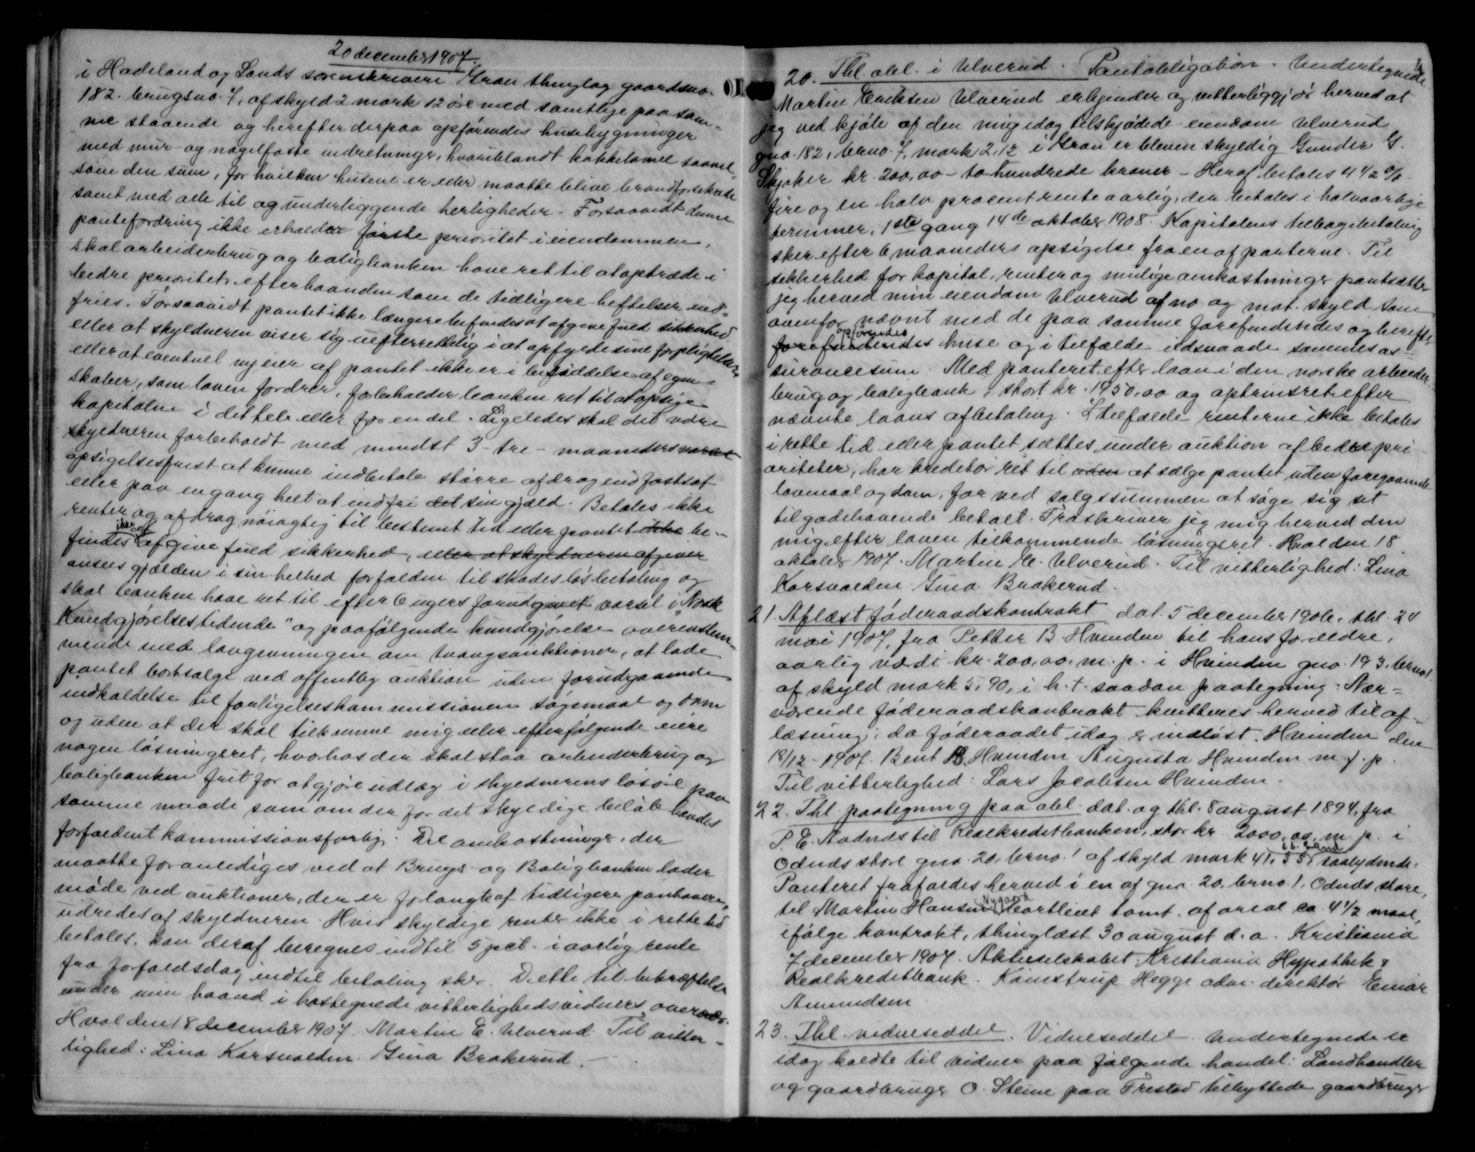 20 december 1907.
i Hadeland og Lands sorenskriveri Gran thinglag gaardsno.
182. brugsno. 7, af skyld 2 mark 12 øre med samtlige paa sam-
me staaende og herefter derpaa opførendes husebygninger
med mur- og nagelfaste indretninger, hvoriblandt kakkelovne saavel
som den sum, for hvilken husene er eller maatte blive brandforsikrede
samt med alle til og underliggende herligheder. Forsaavidt denne
pantefordring ikke erholder første prioritet i eiendommen,
skal arbeiderbrug og boligbanken have ret til at optræde i
bedre prioritet, efterhaanden som de tidligere heftelser ind-
fries. Forsaavidt pantet ikke længere befindes at afgive fuld sikkerhed
eller at skyldneren viser sig uefterrettelig i at opfylde sine forpligtelser,
eller at eventuel ny eier af pantet ikke er i besiddelse af egen-
skaber, som loven fordrer, forbeholder banken ret til at opsige
kapitalen i det hele eller for en del. Ligeledes skal det være
skyldneren forbeholdt med mindst 3 - tre - maaneders varsel
opsigelsesfrist at kunne indbetale større afdrag end fastsat
eller paa engang helt at indfri det sin gjæld. Betales ikke
renter og afdrag nøiagtig til bestemt tid eller pantet ikke be-
findes ikke at afgive fuld sikkerhed, eller at skyldneren afgiver
ansees gjælden i sin helhed forfalden til skadesløs betaling og
skal banken have ret til efter 6 ugers forudgivet varsel i "Norsk
Kundgjørelsestidende" og paafølgende kundgjørelse overenstem-
mende med lovgivningen om tvangsauktioner, at lade
pantet bortsælge ved offentlig auktion uden forudgaaende
indkaldelse til forligelseskommissionen søgemaal og dom
og uden at der skal tilkomme mig eller efterfølgende eiere
nogen løsningsret, hvorhos der skal staa arbeiderbrug og
boligbanken frit for at gjøre udlæg i skyldnerens løsøre paa
samme maade som om der for det skyldige beløb havdes
forfaldent kommissionsforlig. De omkostninger, der
maatte foranlediges ved at Brugs og Boligbanken lader
møde ved auktioner, der er forlangt af tidligere panthavere,
udredes af skyldneren. Hvis skyldige renter ikke i rette tid
betales, kan deraf beregnes indtil 5 pct. i aarlig rente
fra forfaldsdag indtil betaling sker. Dette til bekræftelse
under min haand i hostegnede vitterlighedsvidners overvær.
Hval den 18 december 1907. Martin E. Ulverud. Til vitter-
lighed: Lina Korsvolden. Gina Brakerud. -
20. Thl. obl. i Ulverud. Pantobligation. Undertegnede
Martin Eriksen Ulverud erkjender og vitterliggjør herved at
jeg ved kjøb af den mig idag tilskjødede eiendom Ulverud
gno. 182, brno. 7, mark 2,12 i Gran er bleven skyldig Gunder G.
Skjaker kr. 200,00 - to hundrede kroner - Heraf betales 4 1/2 %
fire og en halv procent rente aarlig, der betales i halvaarlige
terminer, 1ste gang 14de oktober 1908. Kapitalens tilbagebetaling
sker efter 6 maaneders opsigelse fra en af parterne. Til
sikkerhed for kapital, renter og mulige omkostninger pantsætter
jeg herved min eiendom Ulverud af no og mat. skyld som
ovenfor nævnt med de paa samme forefindendes og herefter
forefindendes opførendes huse og i tilfælde ildsvaade sammes as-
surancesum. Med panteret efter laan i den norske arbeider-
brug og boligbank, stort kr. 1950,00 og optrinsret efter
nævnte laans afbetaling. I tilfælde renterne ikke betales
i rette tid eller pantet sættes under auktion af bedre pri-
oriteter, har kreditor ret til at sælge pantet uden foregaaende
lovmaal og dom, for ved salgssummen at søge sig sit
tilgodehavende betalt. Fraskriver jeg mig herved den
mig efter loven tilkommende løsningsret. Hval den 18
oktober 1907. Martin E. Ulverud. Til vitterlighed: Lina
Korsvolden Gina Brakerud.
21. Aflæst føderaadskontrakt dat. 5 december 1906, thl. 24
mai 1907, fra Petter B Hvinden til hans forældre,
aarlig værdi kr. 200,00. m. p. i Hvinden gno. 193, brno 1.
af skyld mark 5,90, i h. t. saadan paategning: Nær-
værende føderaadskontrakt kvitteres herved til af-
læsning, da føderaadet idag er indløst. Hvinden den
18/12 - 1907. Bent B. Hvinden Augusta Hvinden m. f. p.
Til vitterlighed: Lars Jacobsen Hvinden.
22. Thl. paategning paa obl. dat. og thl. 8 august 1894, fra
P. E. Aadnds til Realkreditbanken, stor kr. 2000,00 m. p. i
Odnds store gno. 20, brno. 1 af skyld mark 41,55 i s. Land saalydende:
Panteret frafaldes herved i en af gno. 20, brno 1, Odnds store,
til Martin Hansen Nygaard bortleiet tomt, af areal ca. 4 1/2 maal,
ifølge kontrakt, thinglæst 30 august d. a. Kristiania
7 december 1907. Aktieselskabet Kristiania Hypothek &
Realkreditbank. Kamstrup Hegge adm. direktør Einar
Amundsen
23. Thl. vidneseddel. Vidneseddel. Undertegnede er
idag kaldte til vidner paa følgende handel: Landhandler
og gaardbruger O. Steine paa Frestad tilbyttede gaardbruger